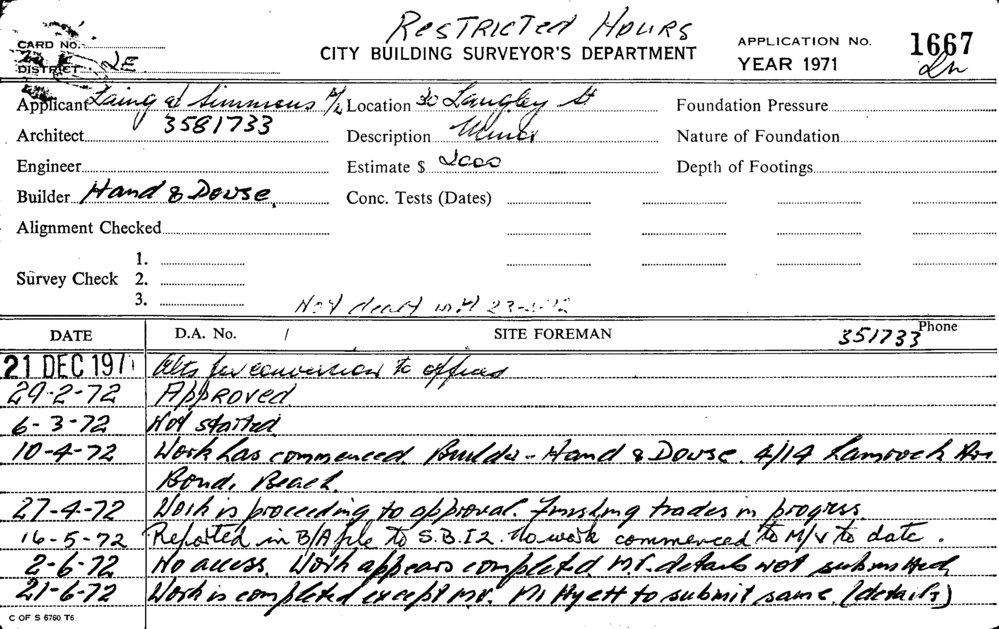 Restricted Hours
CARD NO.
CITY BUILDING SURVEYOR'S DEPARTMENT
APPLICATION No. 1667
DISTRICT 2E
YEAR 1971
Applicant Laing & Simmons P/L Location 30 Langley St Foundation Pressure
Architect 3581733 Description Minor Nature of Foundation
Engineer Estimate $ 2000 Depth of Footings
Builder Hand & Dowse. Conc. Tests (Dates)
Alignment Checked
1.
Survey Check 2.
3.
Not dealt with 23-2-72
DATE D.A. No. / SITE FOREMAN 351733 Phone
21 DEC 1971 Alts for conversion to offices
29-2-72 Approved
6-3-72 Not started
10-4-72 Work has commenced. Builder - Hand & Dowse. 4/14 Lamrock Ave
Bond. Beach.
27-4-72 Work is proceeding to approval. Finishing trades in progress
16-5-72 Reported in B/A file to S.B.I.2. No work commenced to M/V to date.
2-6-72 No access. Work appears completed. M.V. details not submitted
21-6-72 Work is completed except M.V. Mr Hyett to submit same. (details)
C OF S 6760 T6